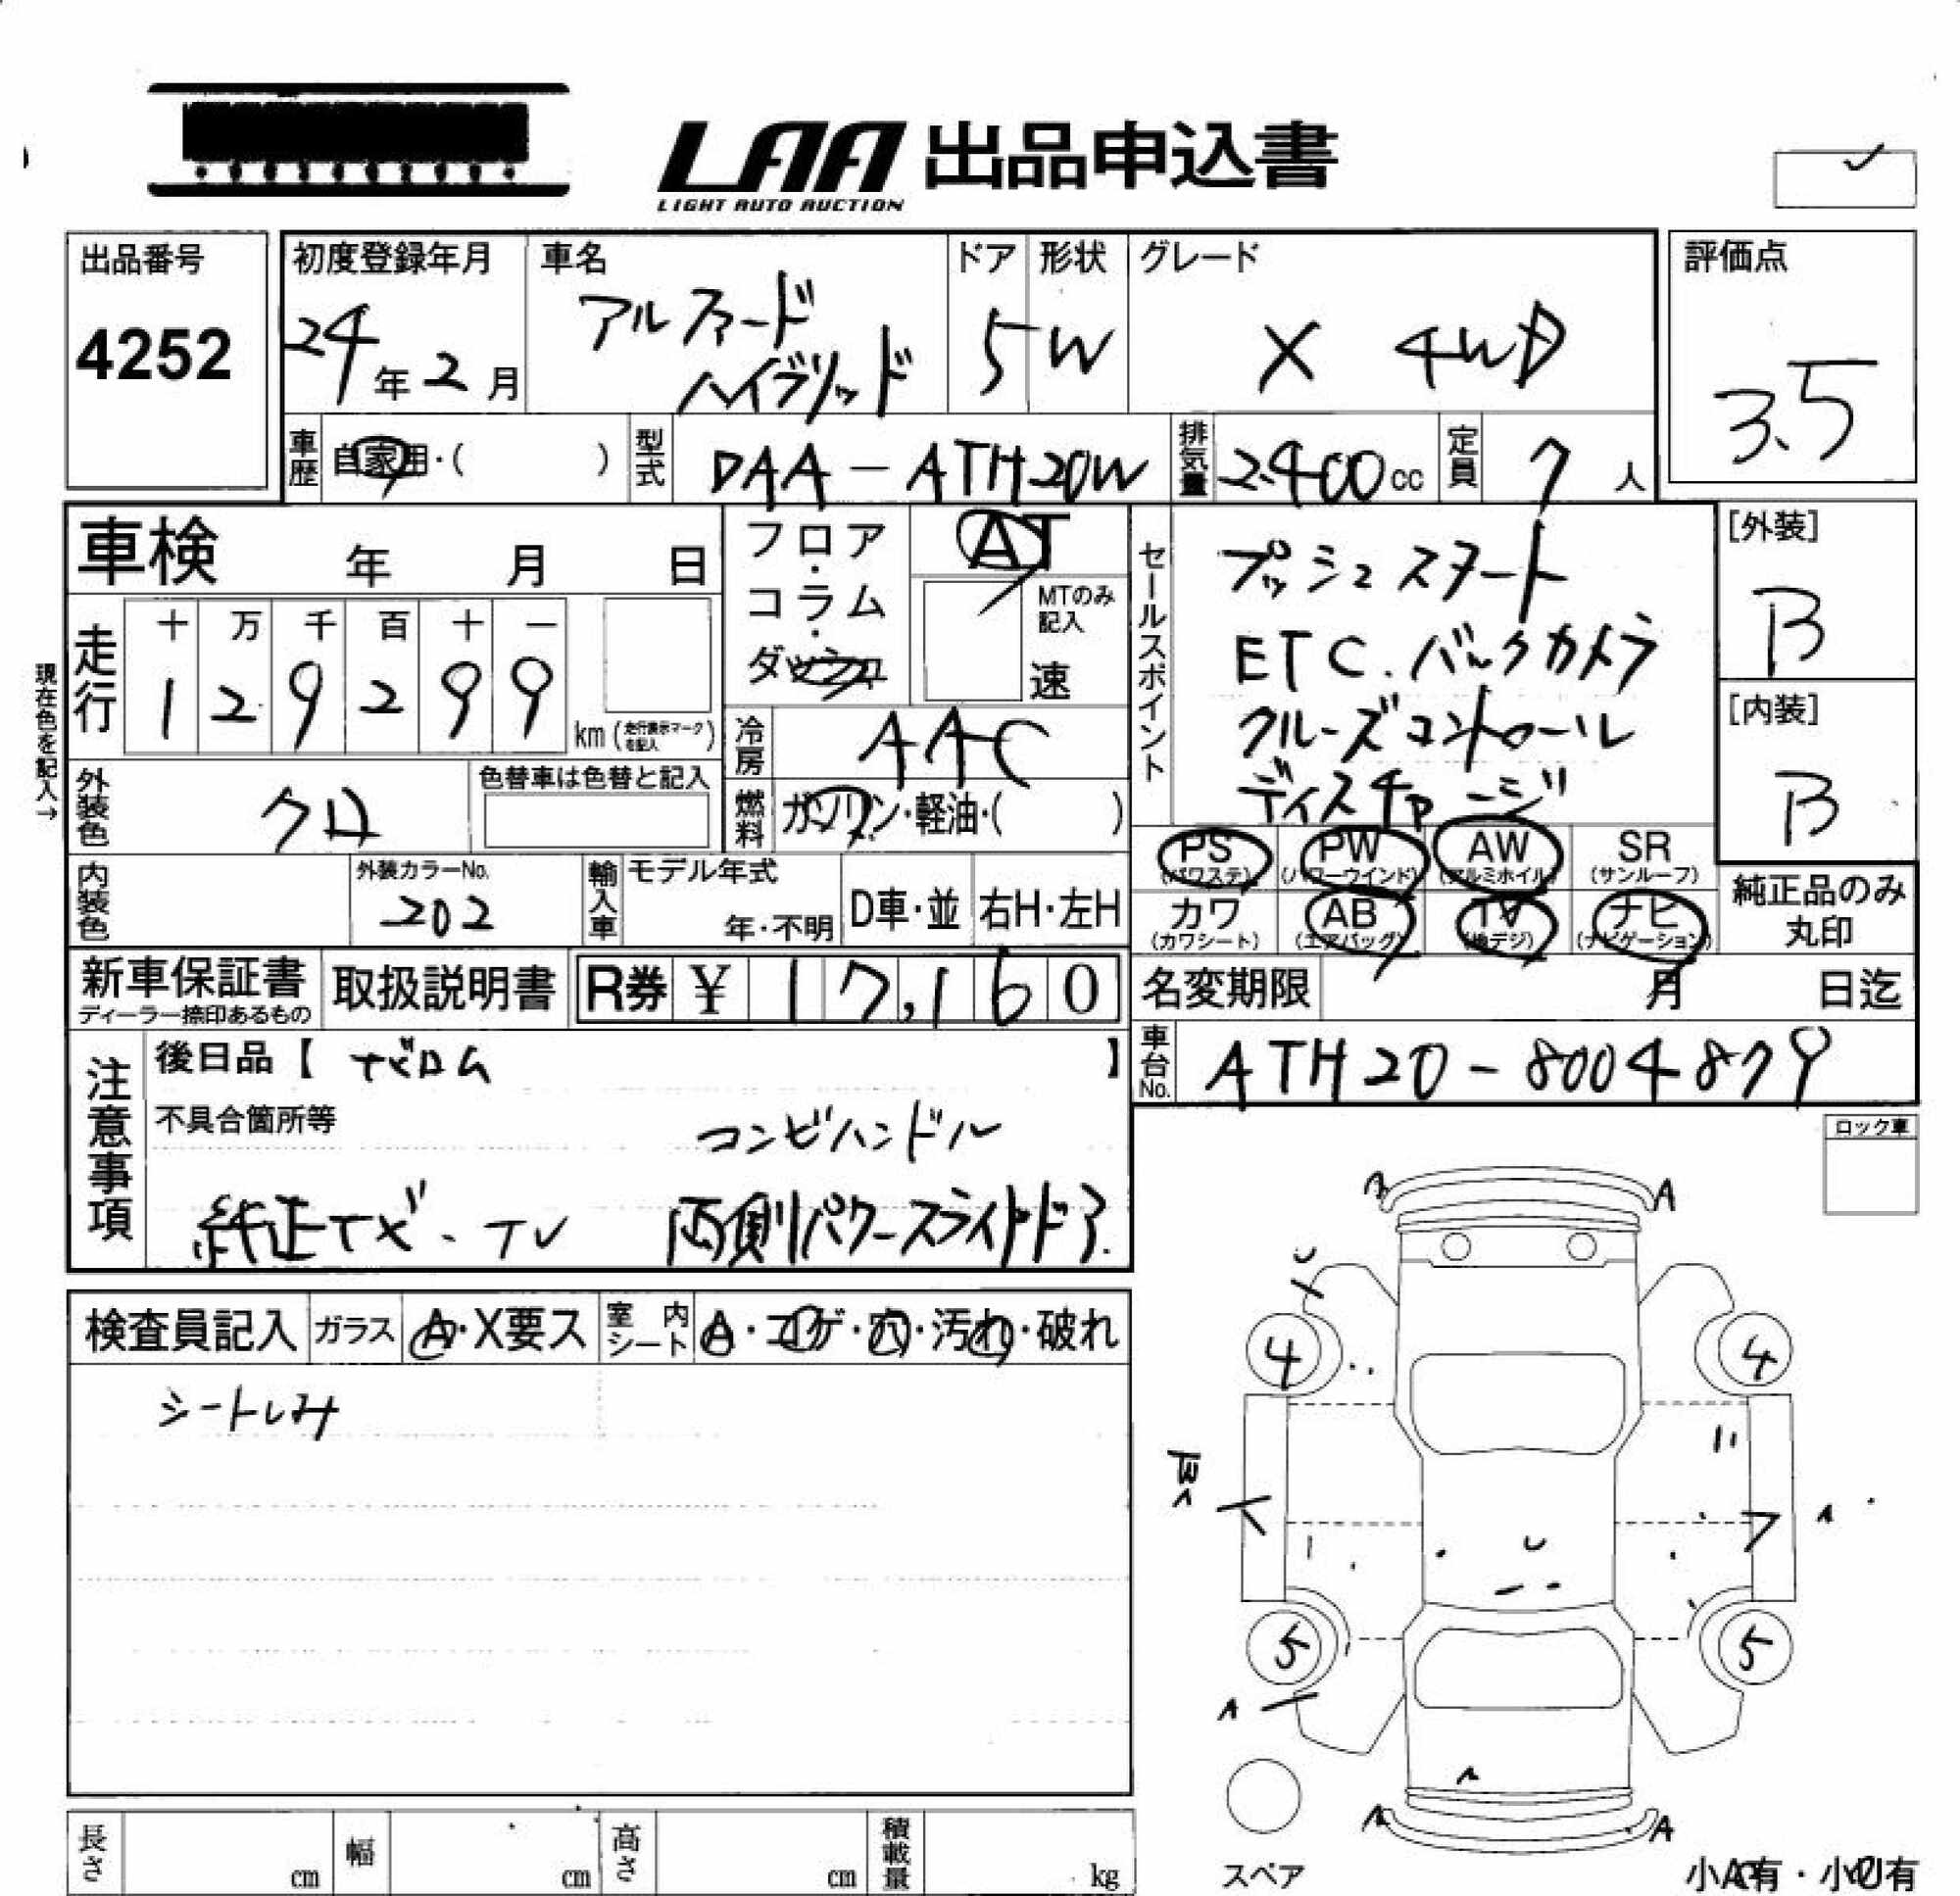 LAA 出品申込書
LIGHT AUTO AUCTION
出品番号 初度登録年月 車名 ドア 形状 グレード 評価点
4252 24年2月 アルファード ハイブリッド 5 W X 4WD 3.5
車歴 自家用・( ) 型式 DAA-ATH20W 排気量 2400cc 定員 7人
車検 年 月 日
フロア・コラム・ダッシュ
AT
MTのみ記入
速
セールスポイント
プッシュスタート
ETC.バックカメラ
クルーズコントロール
ディスチャージ
[外装]
B
[内装]
B
現在色を記入→
走行 十 万 千 百 十 一
1 2 9 2 9 9 km(走行表示マークを記入)
冷房 AAC
外装色 クロ 色替車は色替と記入
燃料 ガソリン・軽油・( )
PS (パワステ) PW (パワーウインド) AW (アルミホイル) SR (サンルーフ)
カワ (カワシート) AB (エアバッグ) TV (地デジ) ナビ (ナビゲーション)
純正品のみ
丸印
内装色 外装カラーNo. 202 輸入車 モデル年式 年・不明 D車・並 右H・左H
新車保証書 ディーラー捺印あるもの 取扱説明書 R券 ¥ 17,160
名変期限 月 日迄
車台No. ATH20-8004879
注意事項
後日品【 ナビロム 】
不具合箇所等
コンビハンドル
純正ナビ・TV 両側パワースライドドア.
ロック車
検査員記入 ガラス A・X要ス 室内シート A・コゲ・穴・汚れ・破れ
シートしみ
A
4 4
5 5
A
A
スペア
長さ cm 幅 cm 高さ cm 積載量 kg
小A有・小U有